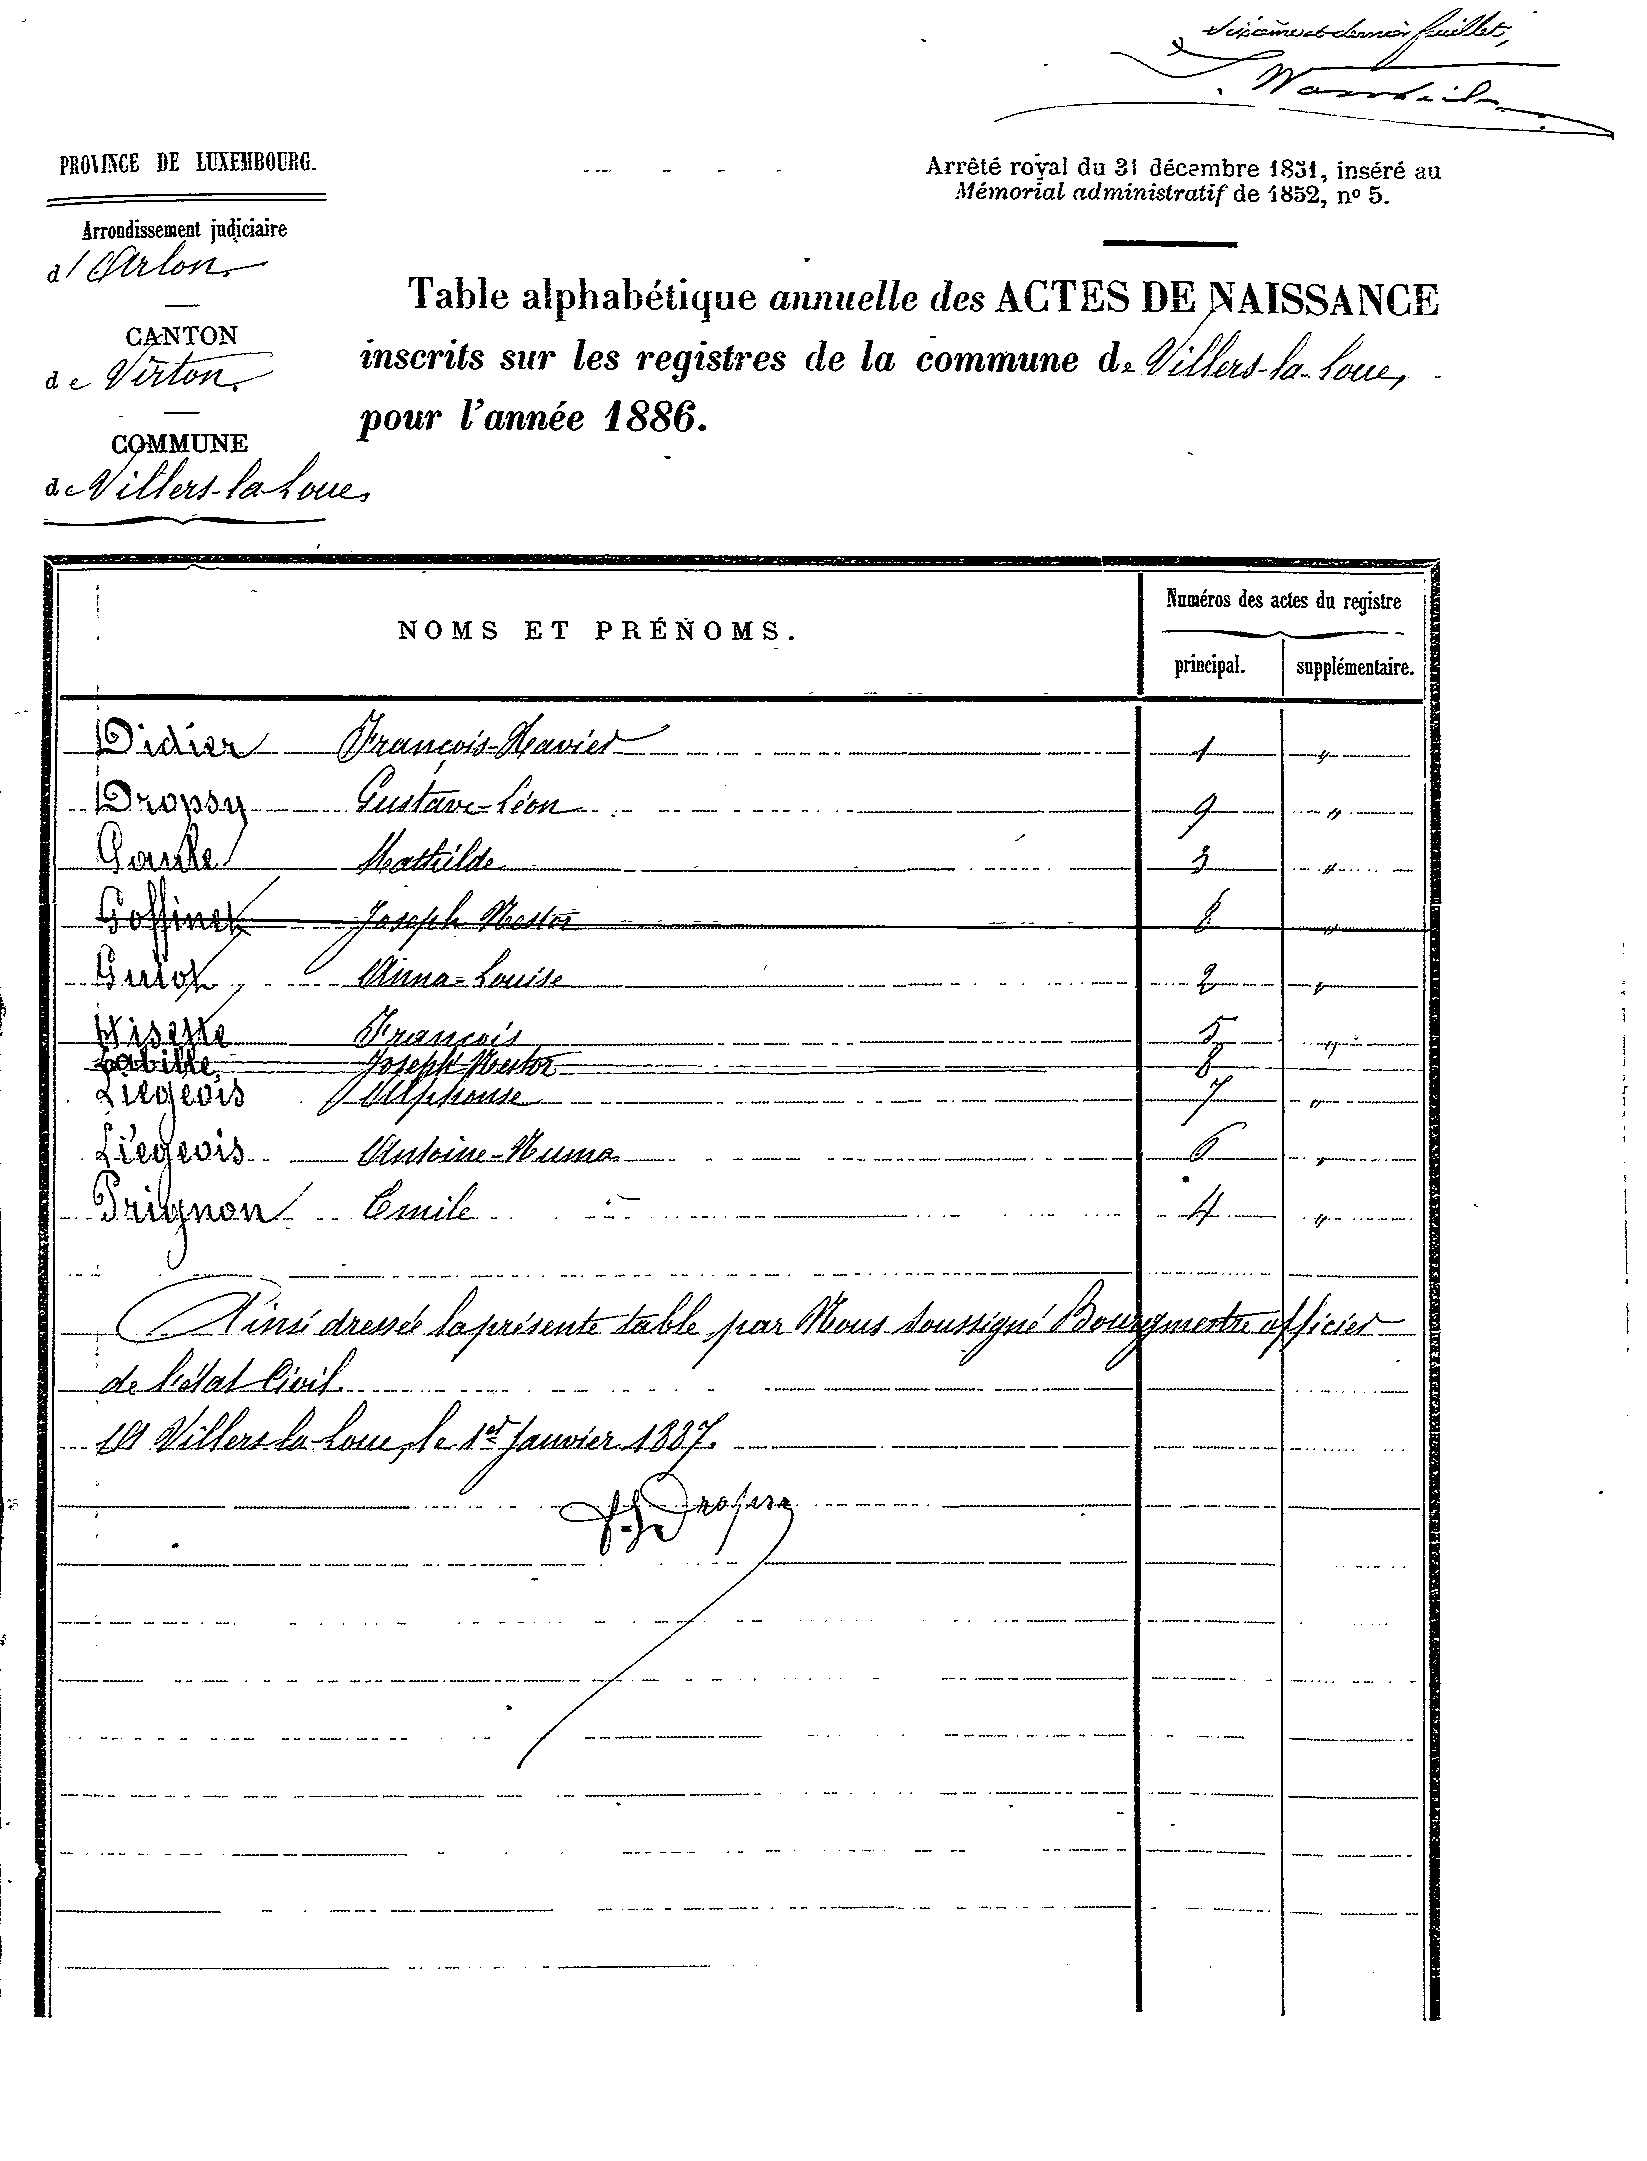 dernier feuillet,
PROVINCE DE LUXEMBOURG.
Arrondissement judiciaire
d'Arlon
CANTON
de Virton.
COMMUNE
de Villers-la-Loue,
Arrêté royal du 31 décembre 1851, inséré au
Mémorial administratif de 1852, nº 5.
Table alphabétique annuelle des ACTES DE NAISSANCE
inscrits sur les registres de la commune de Villers-la-Loue,
pour l'année 1886.
NOMS ET PRÉNOMS.
Numéros des actes du registre
principal.
supplémentaire.
Didier François-Xavier 1 "
Dropsy Gustave-Léon 9 "
Mathilde 3 "
Goffinet Joseph Nestor 8 "
Guiot Anna-Louise 2 "
Hisette François 5 "
Labille, Joseph-Nestor 8
Liégeois Alphonse 7 "
Liégeois Antoine-Numa 6 "
Prignon Emile 4 "
Ainsi dressée la présente table par Nous soussigné Bourgmestre officier
de l'état Civil
A Villers-la-Loue, le 1er Janvier 1887.
Dropsy